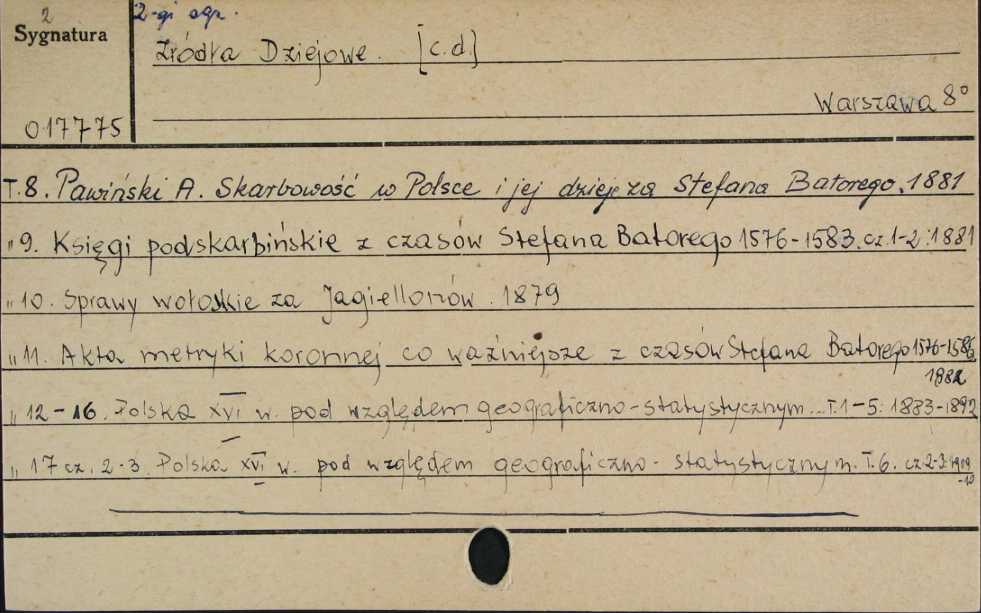 2
2-gi egz.
Sygnatura
Źródła Dziejowe. [c.d.]
Warszawa 8°
017775
T.8. Pawiński A. Skarbowość w Polsce i jej dzieje za Stefana Batorego. 1881
„ 9. Księgi podskarbińskie z czasów Stefana Batorego 1576-1583. cz. 1-2: 1881
„ 10. Sprawy wołoskie za Jagiellonów. 1879
„ 11. Akta metryki koronnej co ważniejsze z czasów Stefana Batorego 1576-1586
1882
„ 12-16. Polska XVI w. pod względem geograficzno-statystycznym... T.1-5: 1883-1892
„ 17 cz. 2-3. Polska XVI w. pod względem geograficzno-statystycznym. T.6. cz 2-3: 1909
-10